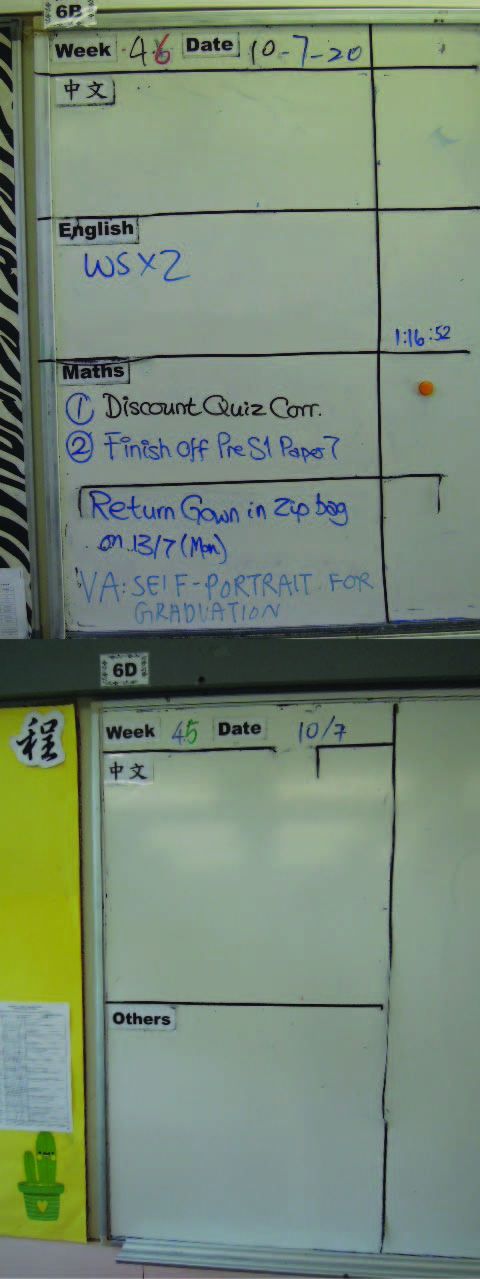 6B
Week 46 Date 10-7-20
中文
English
WS X2
1:16:52
Maths
① Discount Quiz Corr.
② Finish Off Pre S1 Paper 7
Return Gown in Zip bag
on 13/7 (Mon)
VA: SELF-PORTRAIT FOR
GRADUATION
6D
程
Week 45 Date 10/7
中文
Others